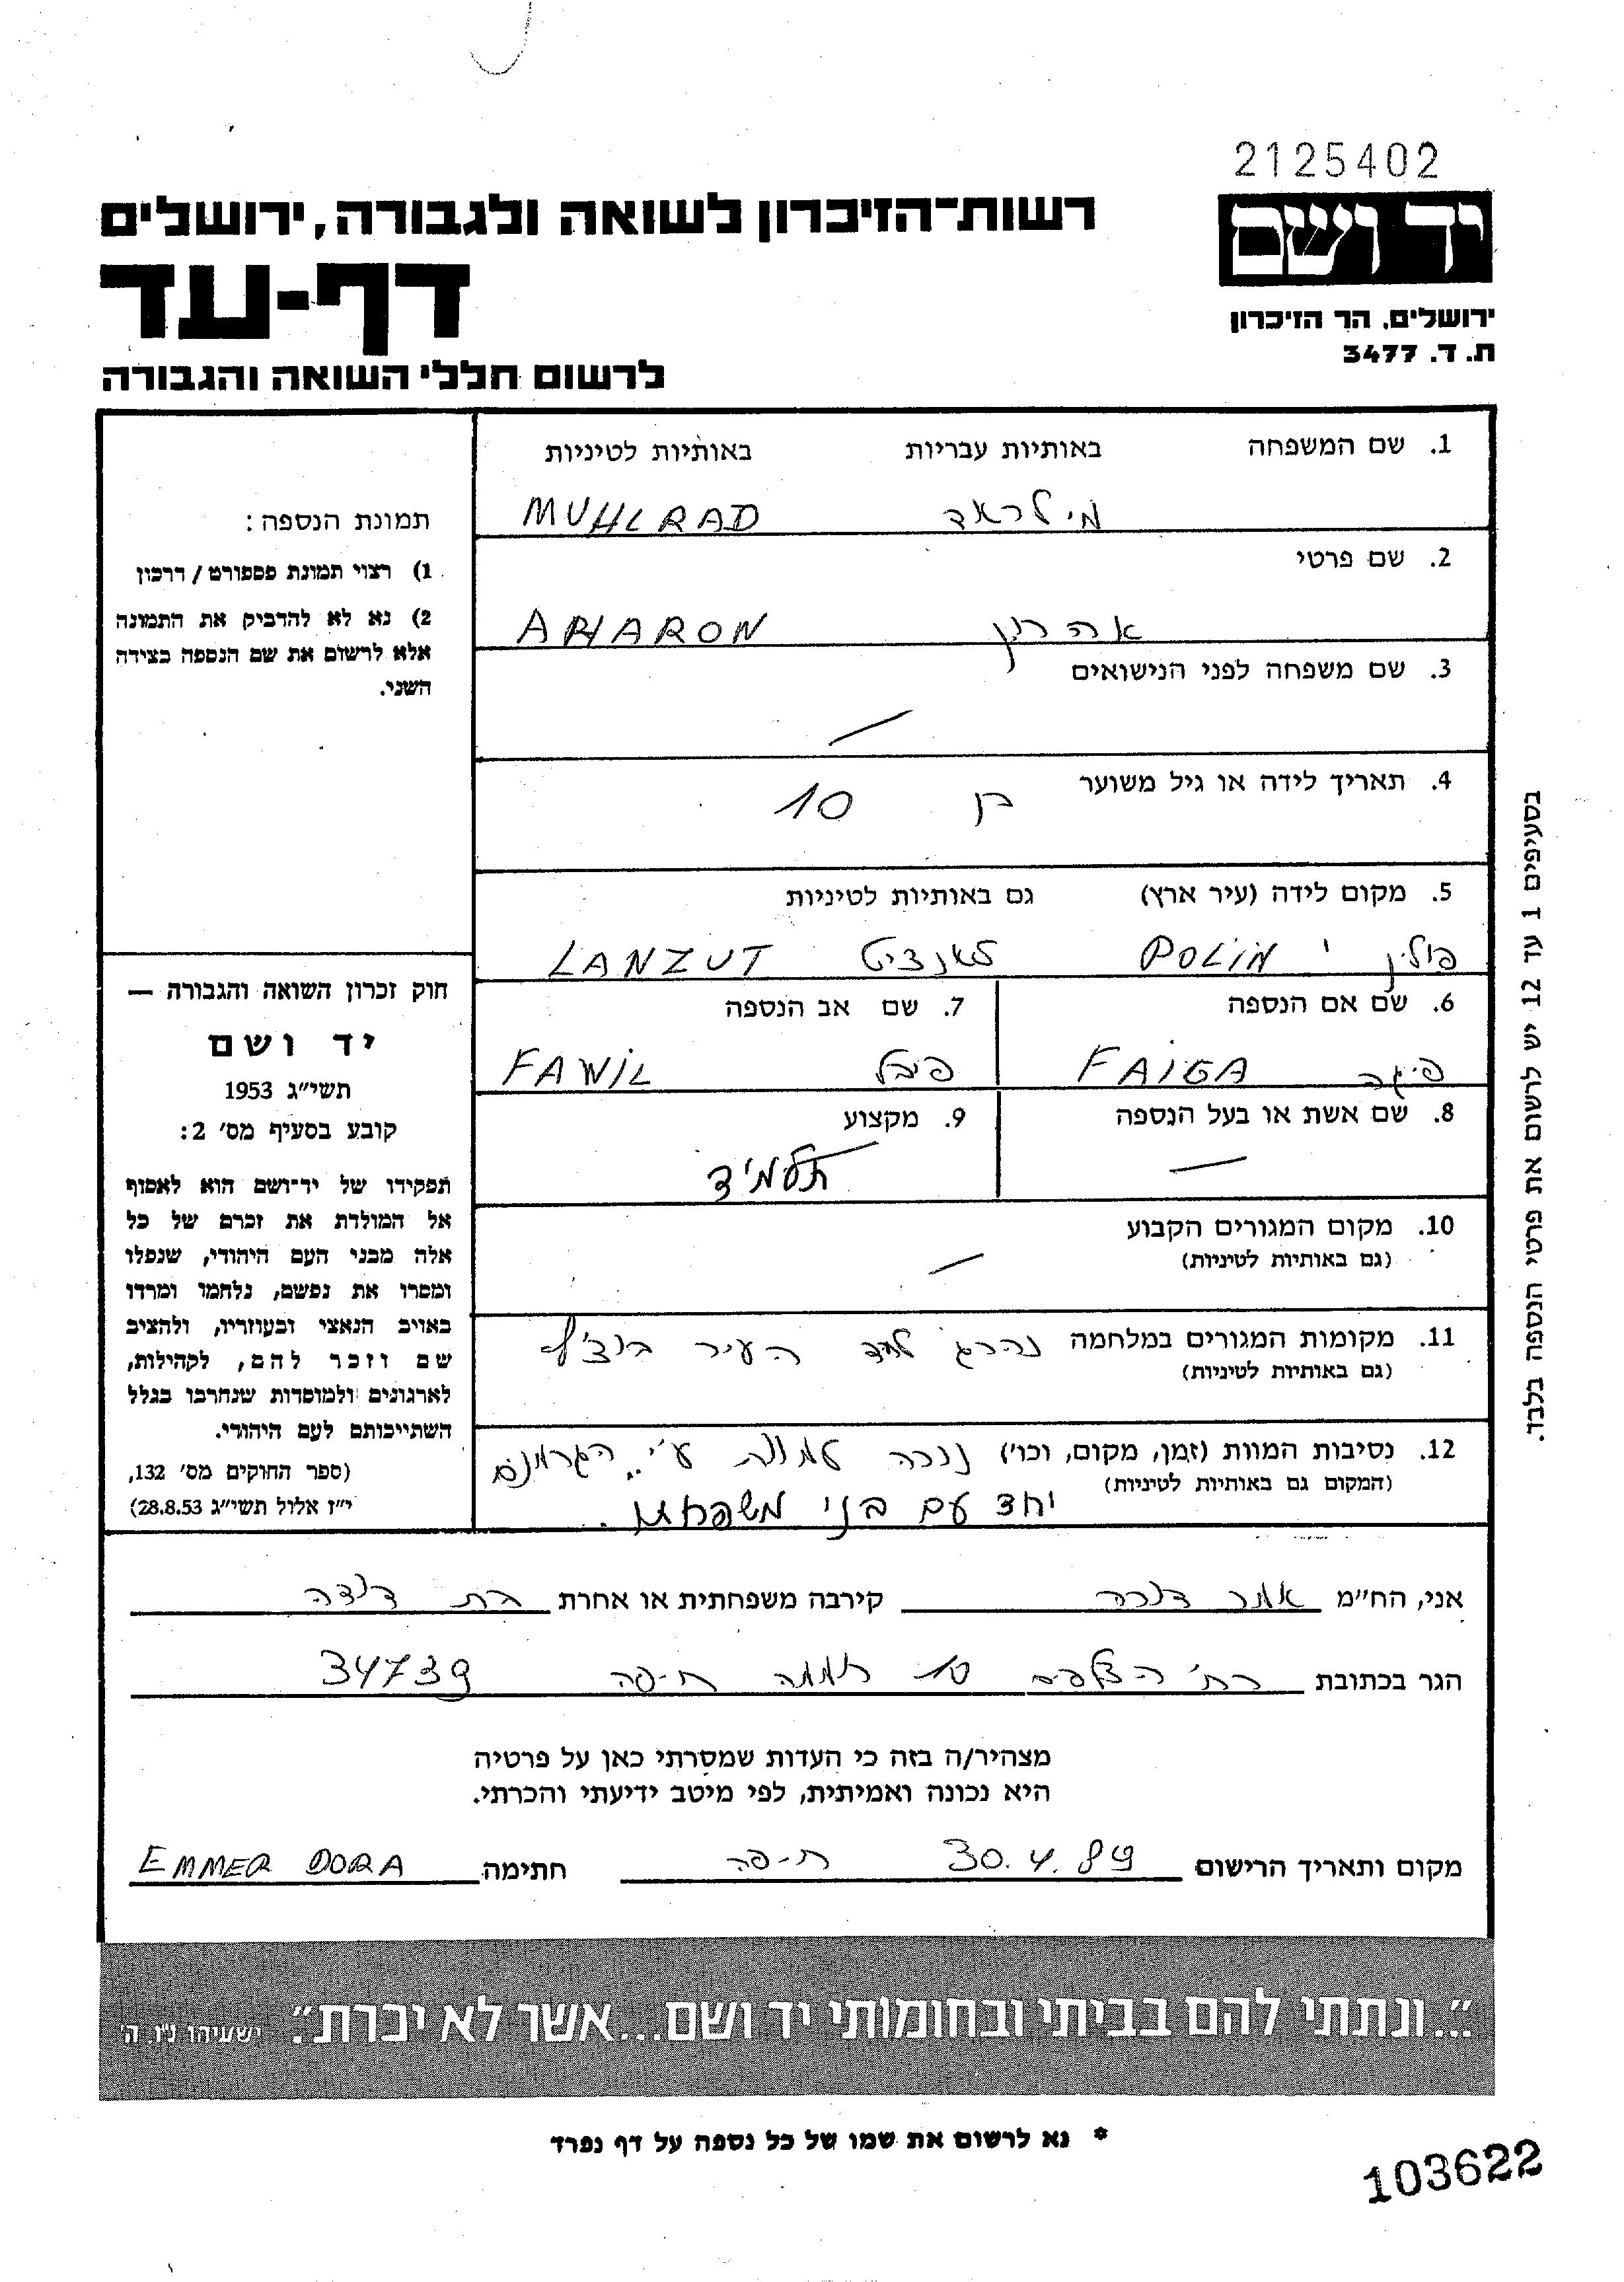 2125402
יד ושם
רשות־הזיכרון לשואה ולגבורה, ירושלים
דף-עד
ירושלים, הר הזיכרון
ת. ד. 3477
לרשום חללי השואה והגבורה
1. שם המשפחה באותיות עבריות באותיות לטיניות
מילראד MUHLRAD
2. שם פרטי
אהרון AHARON
3. שם משפחה לפני הנישואים
—
4. תאריך לידה או גיל משוער בן 10
5. מקום לידה (עיר ארץ) גם באותיות לטיניות
פולין POLIN לאנציט LANZUT
6. שם אם הנספה 7. שם אב הנספה
פיגה FAIGA פיבל FAWIL
8. שם אשת או בעל הנספה 9. מקצוע
— תלמיד
10. מקום המגורים הקבוע
(גם באותיות לטיניות) —
11. מקומות המגורים במלחמה נהרג ליד העיר
(גם באותיות לטיניות)
12. נסיבות המוות (זמן, מקום, וכו') נורה למוות ע"י הגרמנים
(המקום גם באותיות לטיניות)
יחד עם בני משפחתו.
תמונת הנספה:
1) רצוי תמונת פספורט / דרכון
2) נא לא להדביק את התמונה
אלא לרשום את שם הנספה בצידה
השני.
חוק זכרון השואה והגבורה —
יד ושם
תשי״ג 1953
קובע בסעיף מס׳ 2:
תפקידו של יד־ושם הוא לאסוף
אל המולדת את זכרם של כל
אלה מבני העם היהודי, שנפלו
ומסרו את נפשם, נלחמו ומרדו
באויב הנאצי ובעוזריו, ולהציב
שם וזכר להם, לקהילות,
לארגונים ולמוסדות שנחרבו בגלל
השתייכותם לעם היהודי.
(ספר החוקים מס׳ 132,
י״ז אלול תשי״ג 28.8.53)
בסעיפים 1 עד 12 יש לרשום את פרטי הנספה בלבד.
אני, הח״מ אמר דורה קירבה משפחתית או אחרת בת דודה
הגר בכתובת רח' 10 רוממה חיפה 34739
מצהיר/ה בזה כי העדות שמסרתי כאן על פרטיה
היא נכונה ואמיתית, לפי מיטב ידיעתי והכרתי.
מקום ותאריך הרישום 30.4.89 חיפה חתימה EMMER DORA
״...ונתתי להם בביתי ובחומותי יד ושם...אשר לא יכרת״. ישעיהו נ״ו, ה׳
* נא לרשום את שמו של כל נספה על דף נפרד
103622